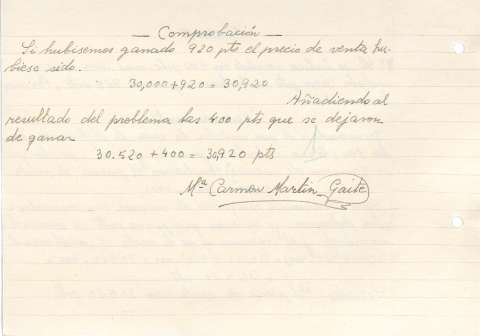 — Comprobación —
Si hubisemos ganado 920 pts el precio de venta hu-
biese sido.
30,000+920 = 30,920
Añadiendo al
resultado del problema las 400 pts que se dejaron
de ganar
30.520 + 400 = 30,920 pts
Mª Carmen Martin Gaite